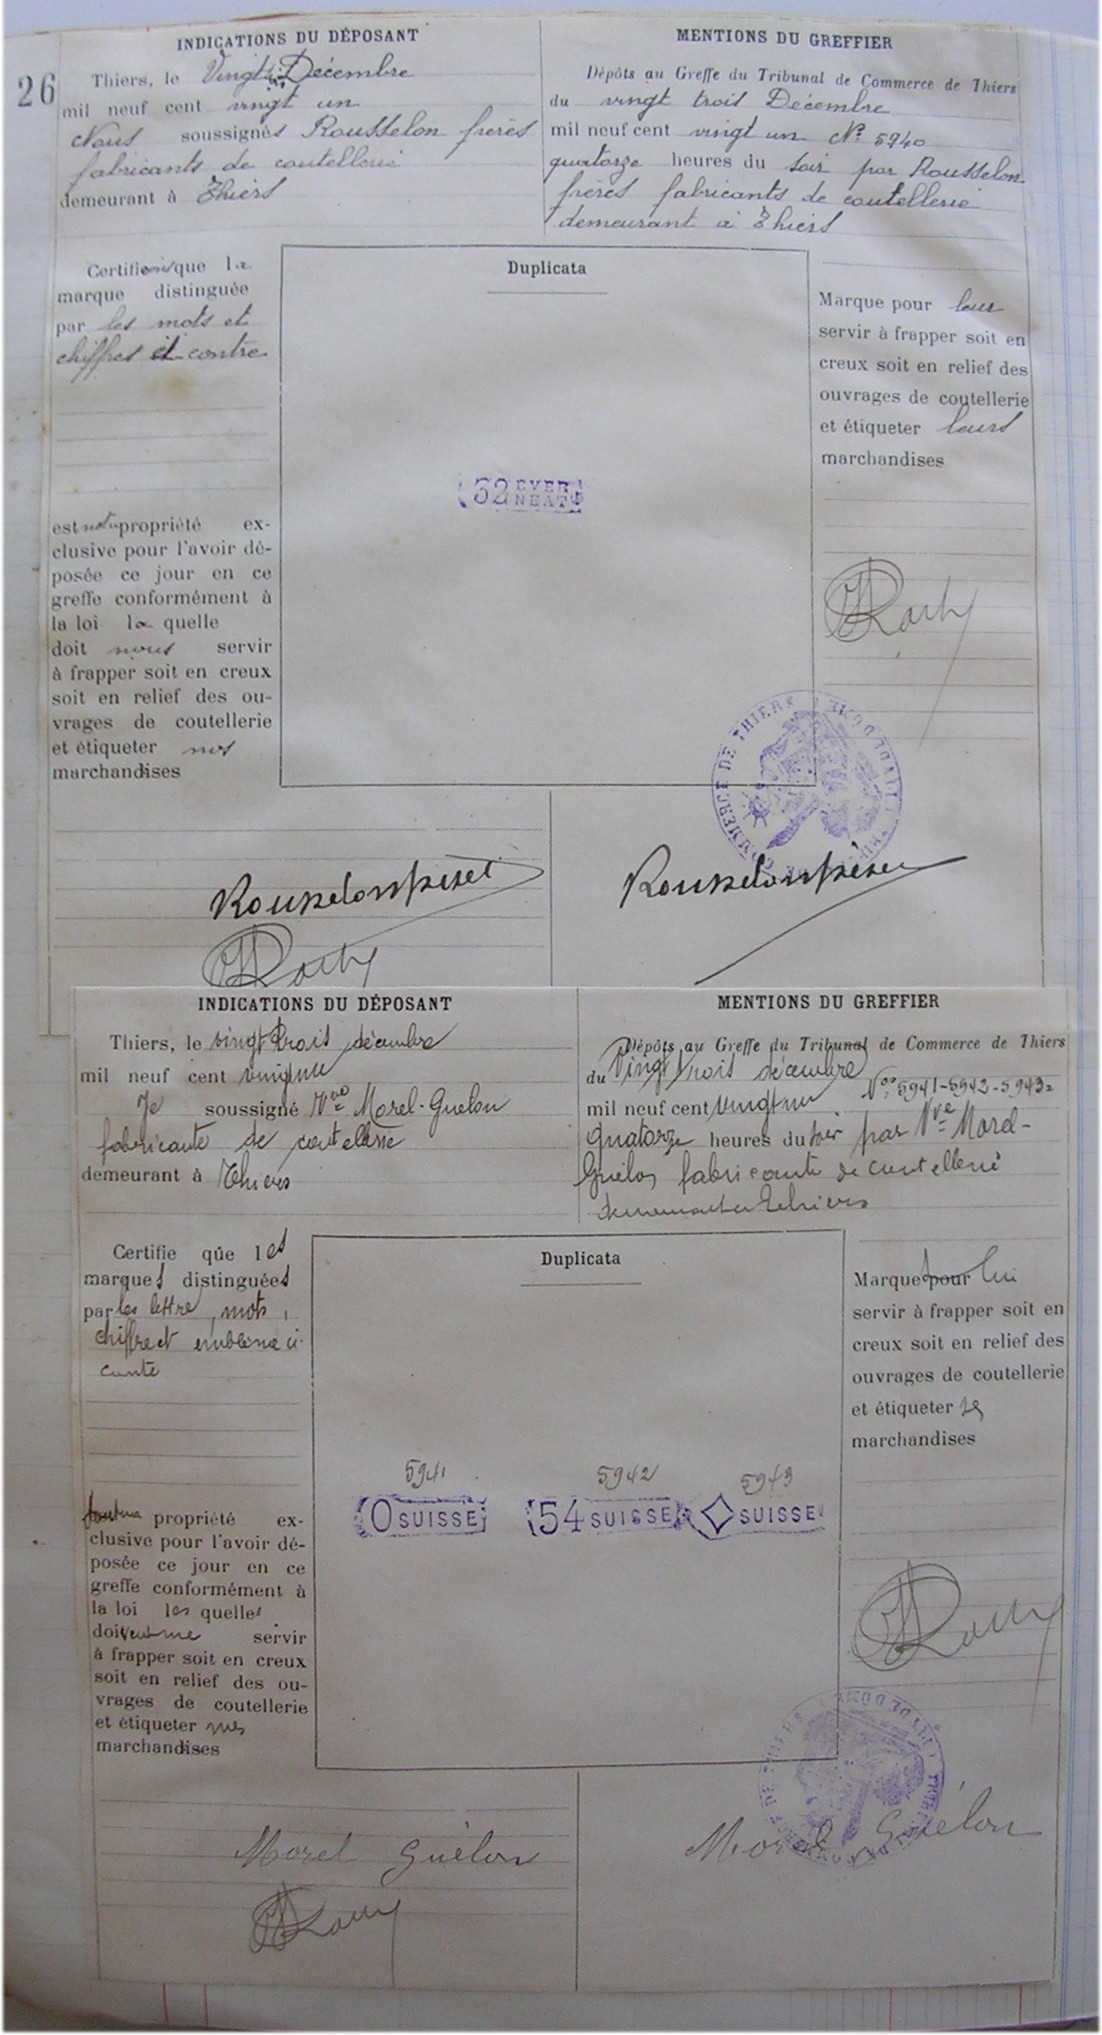 26
INDICATIONS DU DÉPOSANT
Thiers, le Vingt Décembre
mil neuf cent vingt un
Nous soussignés Rousselon frères
fabricants de coutellerie
demeurant à Thiers
MENTIONS DU GREFFIER
Dépôts au Greffe du Tribunal de Commerce de Thiers
du vingt trois Décembre
mil neuf cent vingt un No 5940
quatorze heures du soir par Rousselon
frères fabricants de coutellerie
demeurant à Thiers
Certifions que la
marque distinguée
par les mots et
chiffres ci contre
est notre propriété ex-
clusive pour l'avoir dé-
posée ce jour en ce
greffe conformément à
la loi la quelle
doit nous servir
à frapper soit en creux
soit en relief des ou-
vrages de coutellerie
et étiqueter nos
marchandises
Duplicata
32 EVER
NEAT
Marque pour leur
servir à frapper soit en
creux soit en relief des
ouvrages de coutellerie
et étiqueter leurs
marchandises
COMMERCE DE THIERS
Rousselon frères
Rousselon frères
INDICATIONS DU DÉPOSANT
Thiers, le vingt trois décembre
mil neuf cent vingt un
Je soussigné Vve Morel-Guélon
fabricante de coutellerie
demeurant à Thiers
MENTIONS DU GREFFIER
Dépôts au Greffe du Tribunal de Commerce de Thiers
du Vingt trois décembre
mil neuf cent vingt un Nos 5941-5942-5943
quatorze heures du soir par Vve Morel-
Guélon fabricante de coutellerie
demeurant à Thiers
Certifie que les
marques distinguées
par les lettre, mots,
chiffre et emblème ci-
contre
propriété ex-
clusive pour l'avoir dé-
posée ce jour en ce
greffe conformément à
la loi les quelles
doivent me servir
à frapper soit en creux
soit en relief des ou-
vrages de coutellerie
et étiqueter mes
marchandises
Duplicata
5941 5942 5943
O SUISSE 54 SUISSE SUISSE
Marque pour lui
servir à frapper soit en
creux soit en relief des
ouvrages de coutellerie
et étiqueter ses
marchandises
Morel Guélon
Morel Guélon